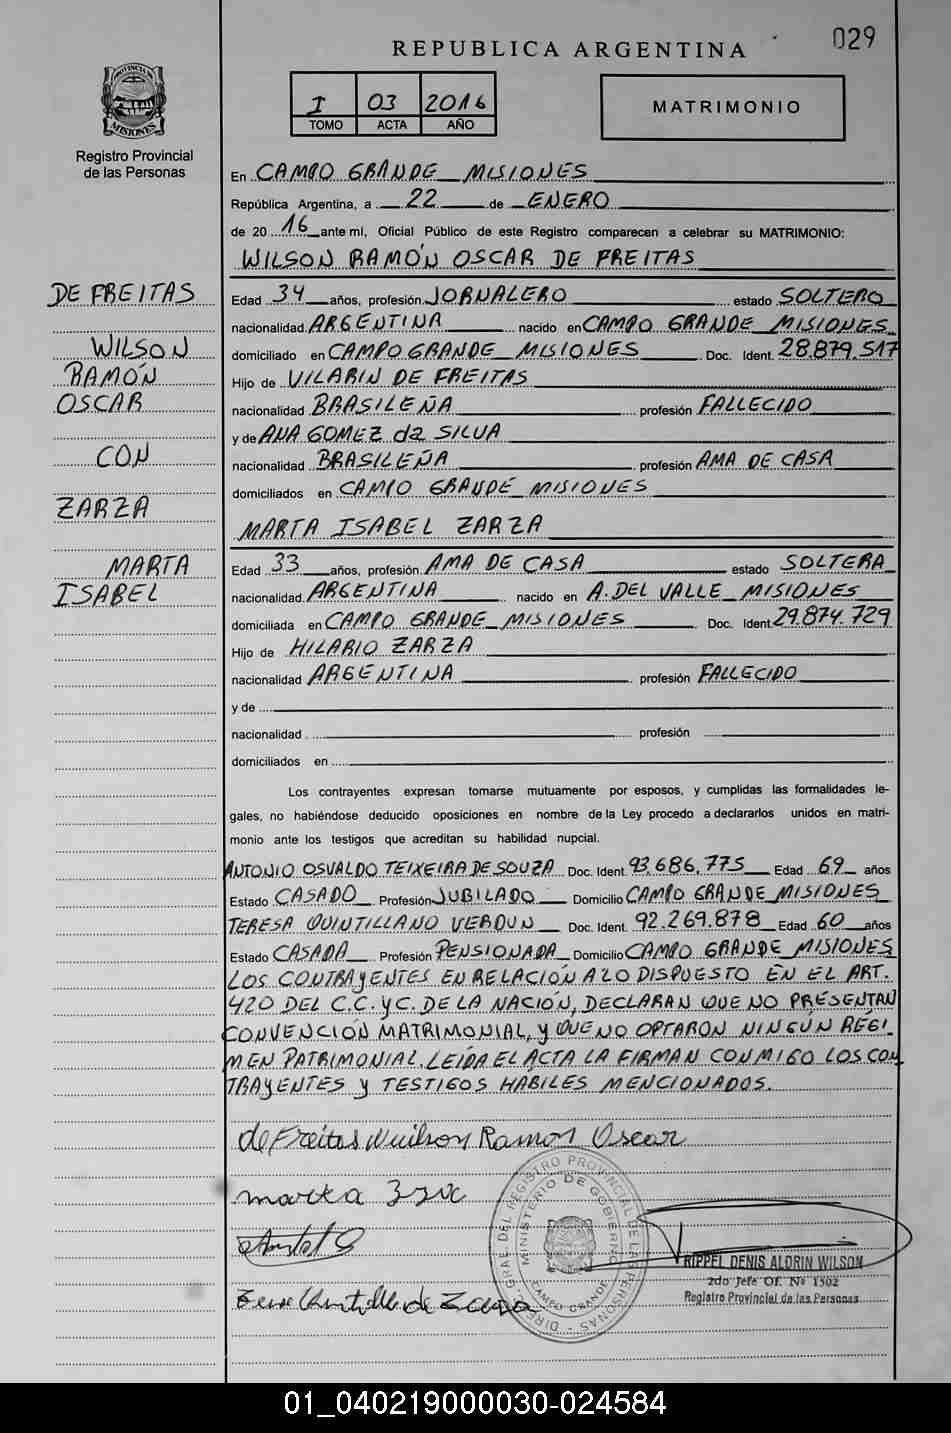 029
REPUBLICA ARGENTINA
I 03 2016
TOMO ACTA AÑO
MATRIMONIO
PROVINCIA DE MISIONES
Registro Provincial
de las Personas
En CAMPO GRANDE MISIONES
República Argentina, a 22 de ENERO
de 20 16 ante mí, Oficial Público de este Registro comparecen a celebrar su MATRIMONIO:
WILSON RAMÓN OSCAR DE FREITAS
DE FREITAS
WILSON
RAMÓN
OSCAR
CON
ZARZA
MARTA
ISABEL
Edad 34 años, profesión JORNALERO estado SOLTERO
nacionalidad ARGENTINA nacido en CAMPO GRANDE MISIONES
domiciliado en CAMPO GRANDE MISIONES Doc. Ident. 28.879.517
Hijo de VILARIN DE FREITAS
nacionalidad BRASILEÑA profesión FALLECIDO
y de ANA GOMEZ da SILVA
nacionalidad BRASILEÑA profesión AMA DE CASA
domiciliados en CAMPO GRANDE MISIONES
MARTA ISABEL ZARZA
Edad 33 años, profesión AMA DE CASA estado SOLTERA
nacionalidad ARGENTINA nacido en A. DEL VALLE MISIONES
domiciliada en CAMPO GRANDE MISIONES Doc. Ident. 29.874.729
Hijo de HILARIO ZARZA
nacionalidad ARGENTINA profesión FALLECIDO
y de
nacionalidad profesión
domiciliados en
Los contrayentes expresan tomarse mutuamente por esposos, y cumplidas las formalidades le-
gales, no habiéndose deducido oposiciones en nombre de la Ley procedo a declararlos unidos en matri-
monio ante los testigos que acreditan su habilidad nupcial.
ANTONIO OSVALDO TEIXEIRA DE SOUZA Doc. Ident. 93.686.775 Edad 69 años
Estado CASADO Profesión JUBILADO Domicilio CAMPO GRANDE MISIONES
TERESA QUINTILLANO VERDUN Doc. Ident. 92.269.878 Edad 60 años
Estado CASADA Profesión PENSIONADA Domicilio CAMPO GRANDE MISIONES
LOS CONTRAYENTES EN RELACIÓN A LO DISPUESTO EN EL ART.
420 DEL C.C. y C. DE LA NACIÓN, DECLARAN QUE NO PRESENTAN
CONVENCIÓN MATRIMONIAL, y QUE NO OPTARON NINGÚN REGI-
MEN PATRIMONIAL. LEIDA EL ACTA LA FIRMAN CONMIGO LOS CON
TRAYENTES y TESTIGOS HABILES MENCIONADOS.
de Freitas Wuilson Ramon Oscar
marta
DIREC. GRAL DEL REGISTRO PROVINCIAL DE LAS PERSONAS
MINISTERIO DE GOBIERNO
CAMPO GRANDE
RIPPEL DENIS ALDRIN WILSON
2do Jefe Of. Nº 1502
Registro Provincial de las Personas
01_040219000030-024584